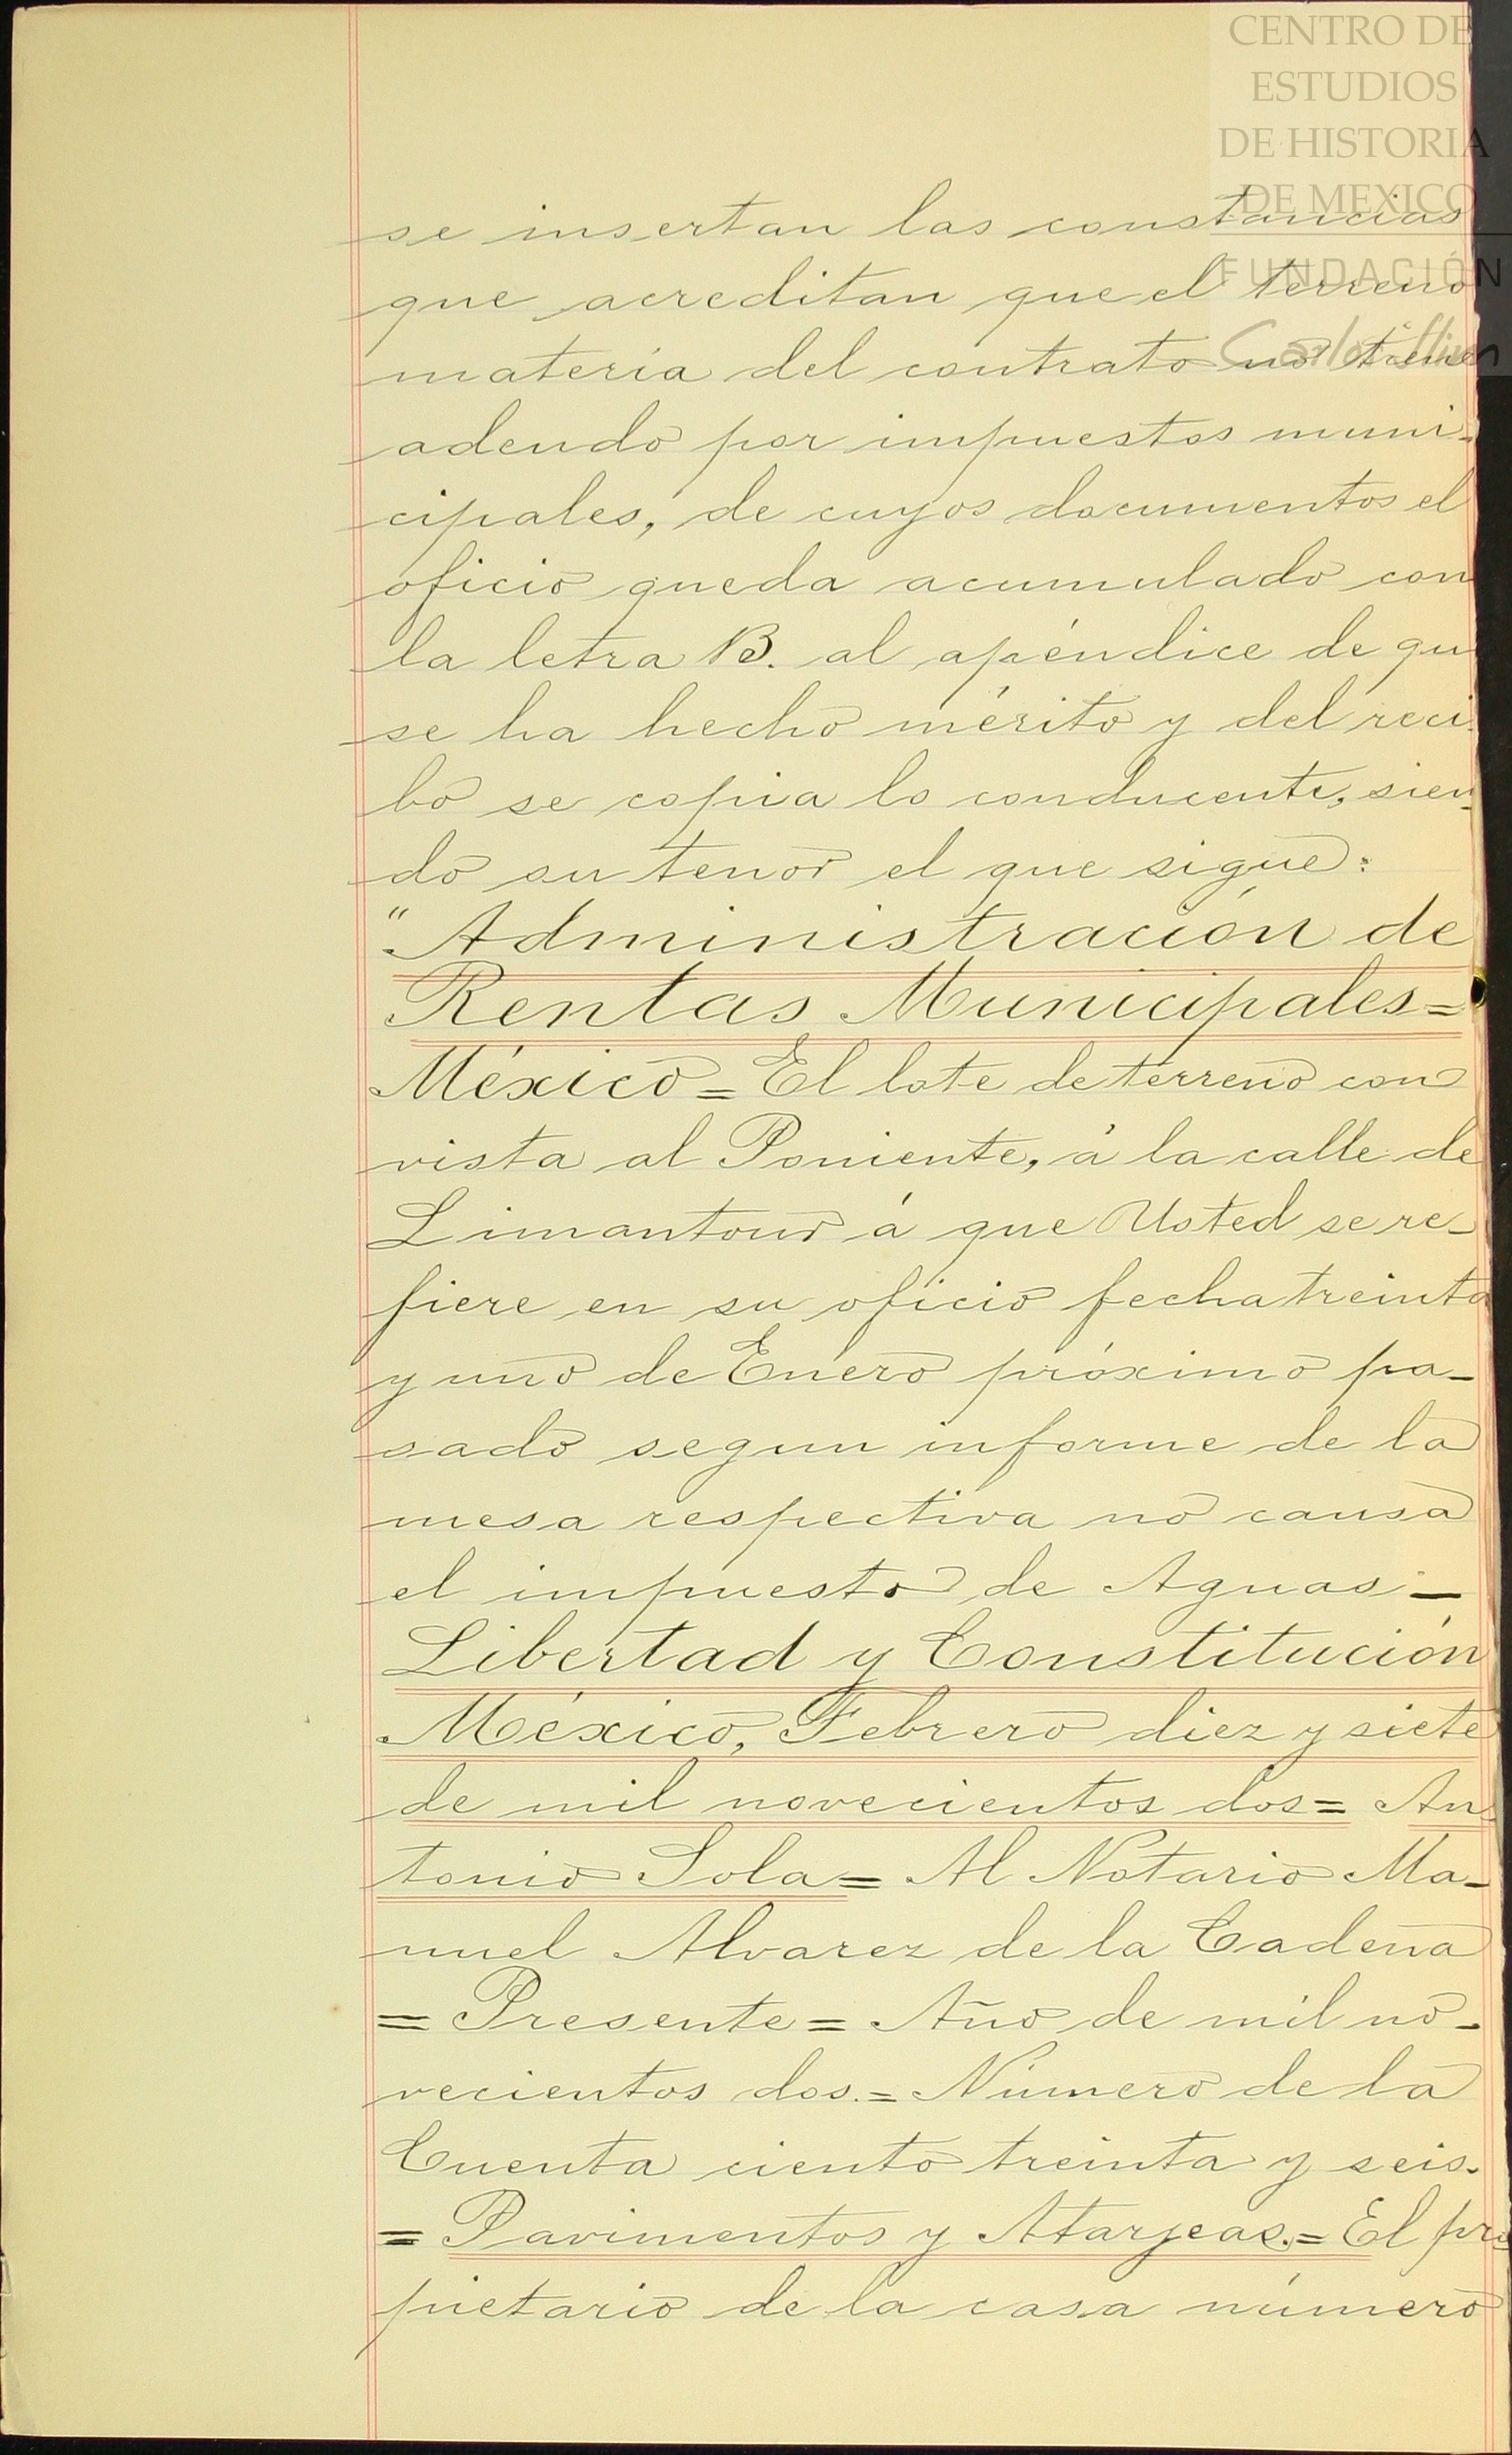 CENTRO DE
ESTUDIOS
DE HISTORIA
DE MEXICO
FUNDACIÓN
Carlos Slim
se insertan las constancias
que acreditan que el terreno
materia del contrato no tiene
adeudo por impuestos muni-
cipales, de cuyos documentos el
oficio queda acumulado con
la letra B. al apéndice de qu
se ha hecho mérito y del reci-
bo se copia lo conducente, sien-
do su tenor el que sigue:
"Administración de
Rentas Municipales=
México= El lote de terreno con
vista al Poniente, á la calle de
Limantour á que Usted se re-
fiere en su oficio fecha treinta
y uno de Enero próximo pa-
sado segun informe de la
mesa respectiva no causa
el impuesto de Aguas=
Libertad y Constitución
México, Febrero diez y siete
de mil novecientos dos= An-
tonio Sola= Al Notario Ma-
nuel Alvarez de la Cadena
= Presente= Año de mil no-
vecientos dos.= Número de la
Cuenta ciento treinta y seis.
= Pavimentos y Atarjeas.= El pro-
pietario de la casa número